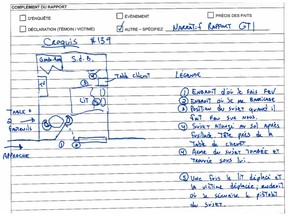 COMPLÉMENT DU RAPPORT
D'ENQUÊTE
ÉVÉNEMENT
PRÉCIS DES FAITS
DÉCLARATION (TÉMOIN / VICTIME)
AUTRE - SPÉCIFIEZ
Narratif Rapport GTI
Croquis # 139
S.d.B.
Table chevet
LIT
TABLE
FAUTEUILS
APPROCHE
LÉGENDE
① Endroit d'où je fais feu
② Endroit où je me
③ Position du sujet quand il
fait feu sur nous.
④ Sujet allongé au sol après
Tête près de la
Table de chevet
④ Arme du sujet tombée et
sous lit
⑤ Une fois le lit déplacé et
la victime déplacée, endroit
où je sécurise le pistolet
du sujet.